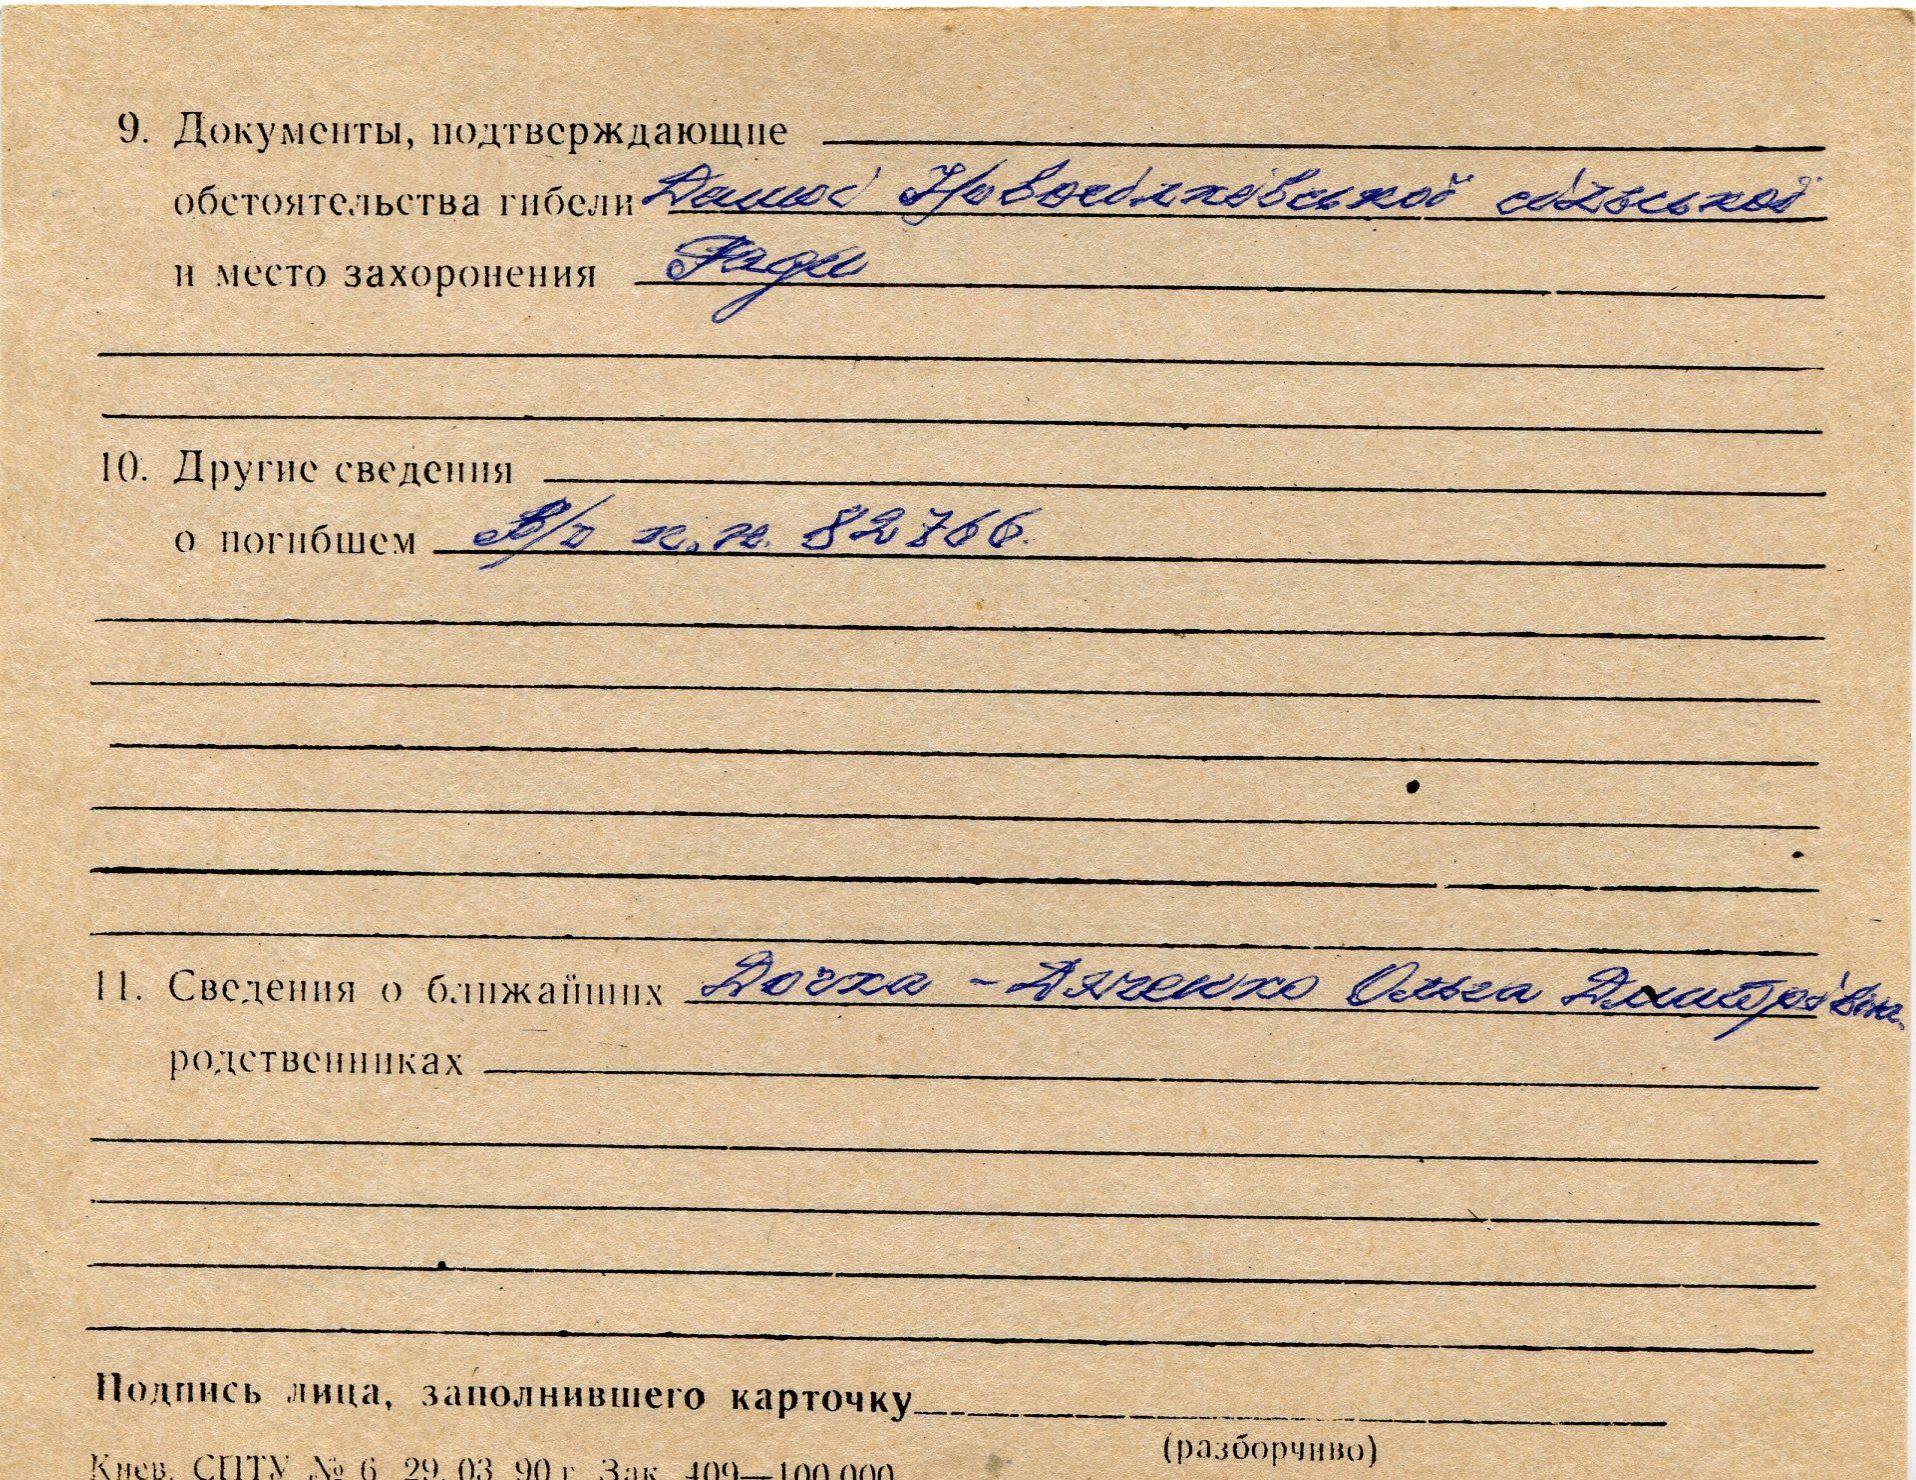 9. Документы, подтверждающие
обстоятельства гибели Данні Новосілківської сільської
и место захоронения Ради
10. Другие сведения
о погибшем В/ч п.п. 82766.
11. Сведения о ближайших Дочка - Дяченко Ольга Дмитрівн.
родственниках
Подпись лица, заполнившего карточку
(разборчиво)
Киев. СПТУ № 6 29. 03 90 г. Зак. 409—100 000